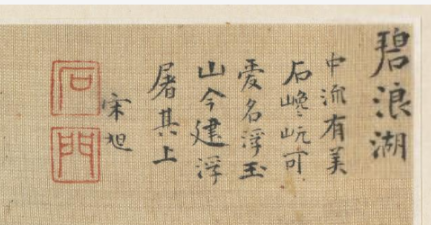 碧浪湖
中流有美
石巉岏可
愛名浮玉
山今建浮
屠其上
宋旭
石門